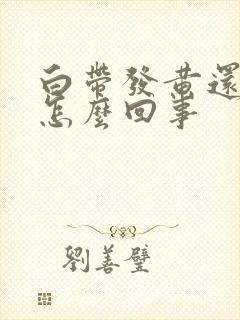 白帶發黃還
怎麼回事
劉善璧